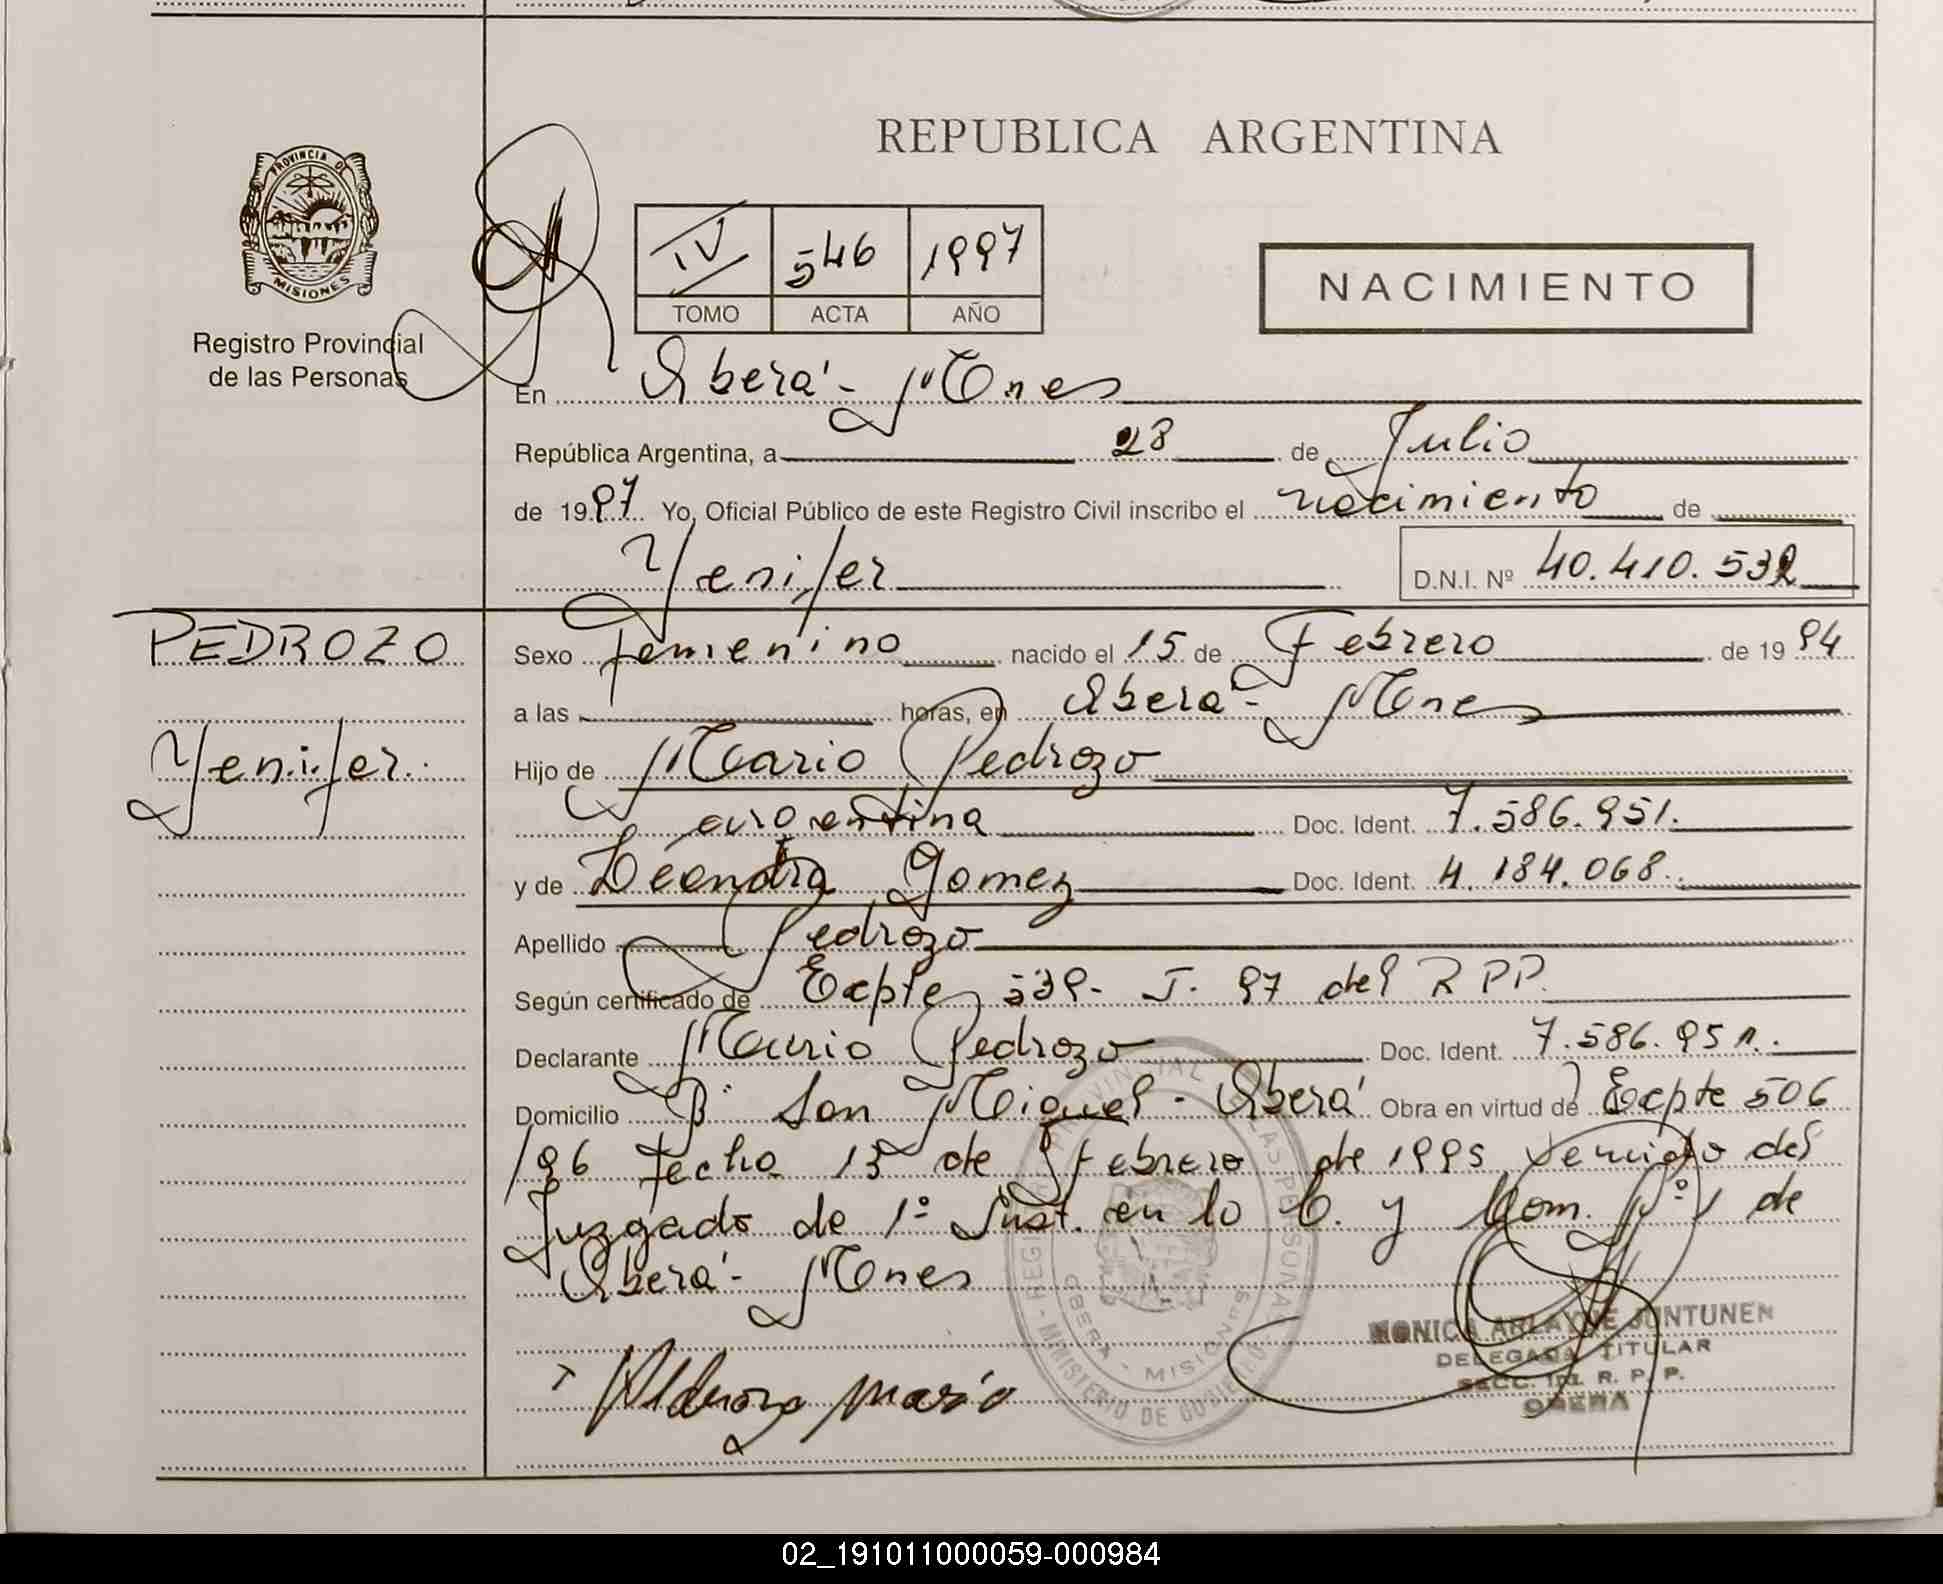 REPUBLICA ARGENTINA
PROVINCIA DE
MISIONES
Registro Provincial
de las Personas
IV 546 1997
TOMO ACTA AÑO
NACIMIENTO
En Oberá - Mnes
República Argentina, a 28 de Julio
de 1997 Yo, Oficial Público de este Registro Civil inscribo el nacimiento de
Yenifer D.N.I. Nº 40.410.532
PEDROZO
Yenifer
Sexo femenino nacido el 15 de Febrero de 1994
a las horas, en Oberá - Mnes
Hijo de Mario Pedrozo
argentina Doc. Ident. 7.586.951.
y de Leandra Gomez Doc. Ident. 4.184.068.
Apellido Pedrozo
Según certificado de Expte 539- J- 97 del RPP.
Declarante Mario Pedrozo Doc. Ident. 7.586.951.
Domicilio Bº San Miguel - Oberá Obra en virtud de Expte 506
/96 fecha 13 de Febrero de 1995 venido del
Juzgado de 1º Inst. en lo C. y Com. Nº 1 de
Oberá - Mnes
Pedrozo Mario
REGISTRO PROVINCIAL DE LAS PERSONAS - MINISTERIO DE GOBIERNO
OBERA - MISIONES
MONICA ARLAYNE JUNTUNEN
DELEGADA TITULAR
SECC. 1ra. R. P. P.
OBERA
02_191011000059-000984